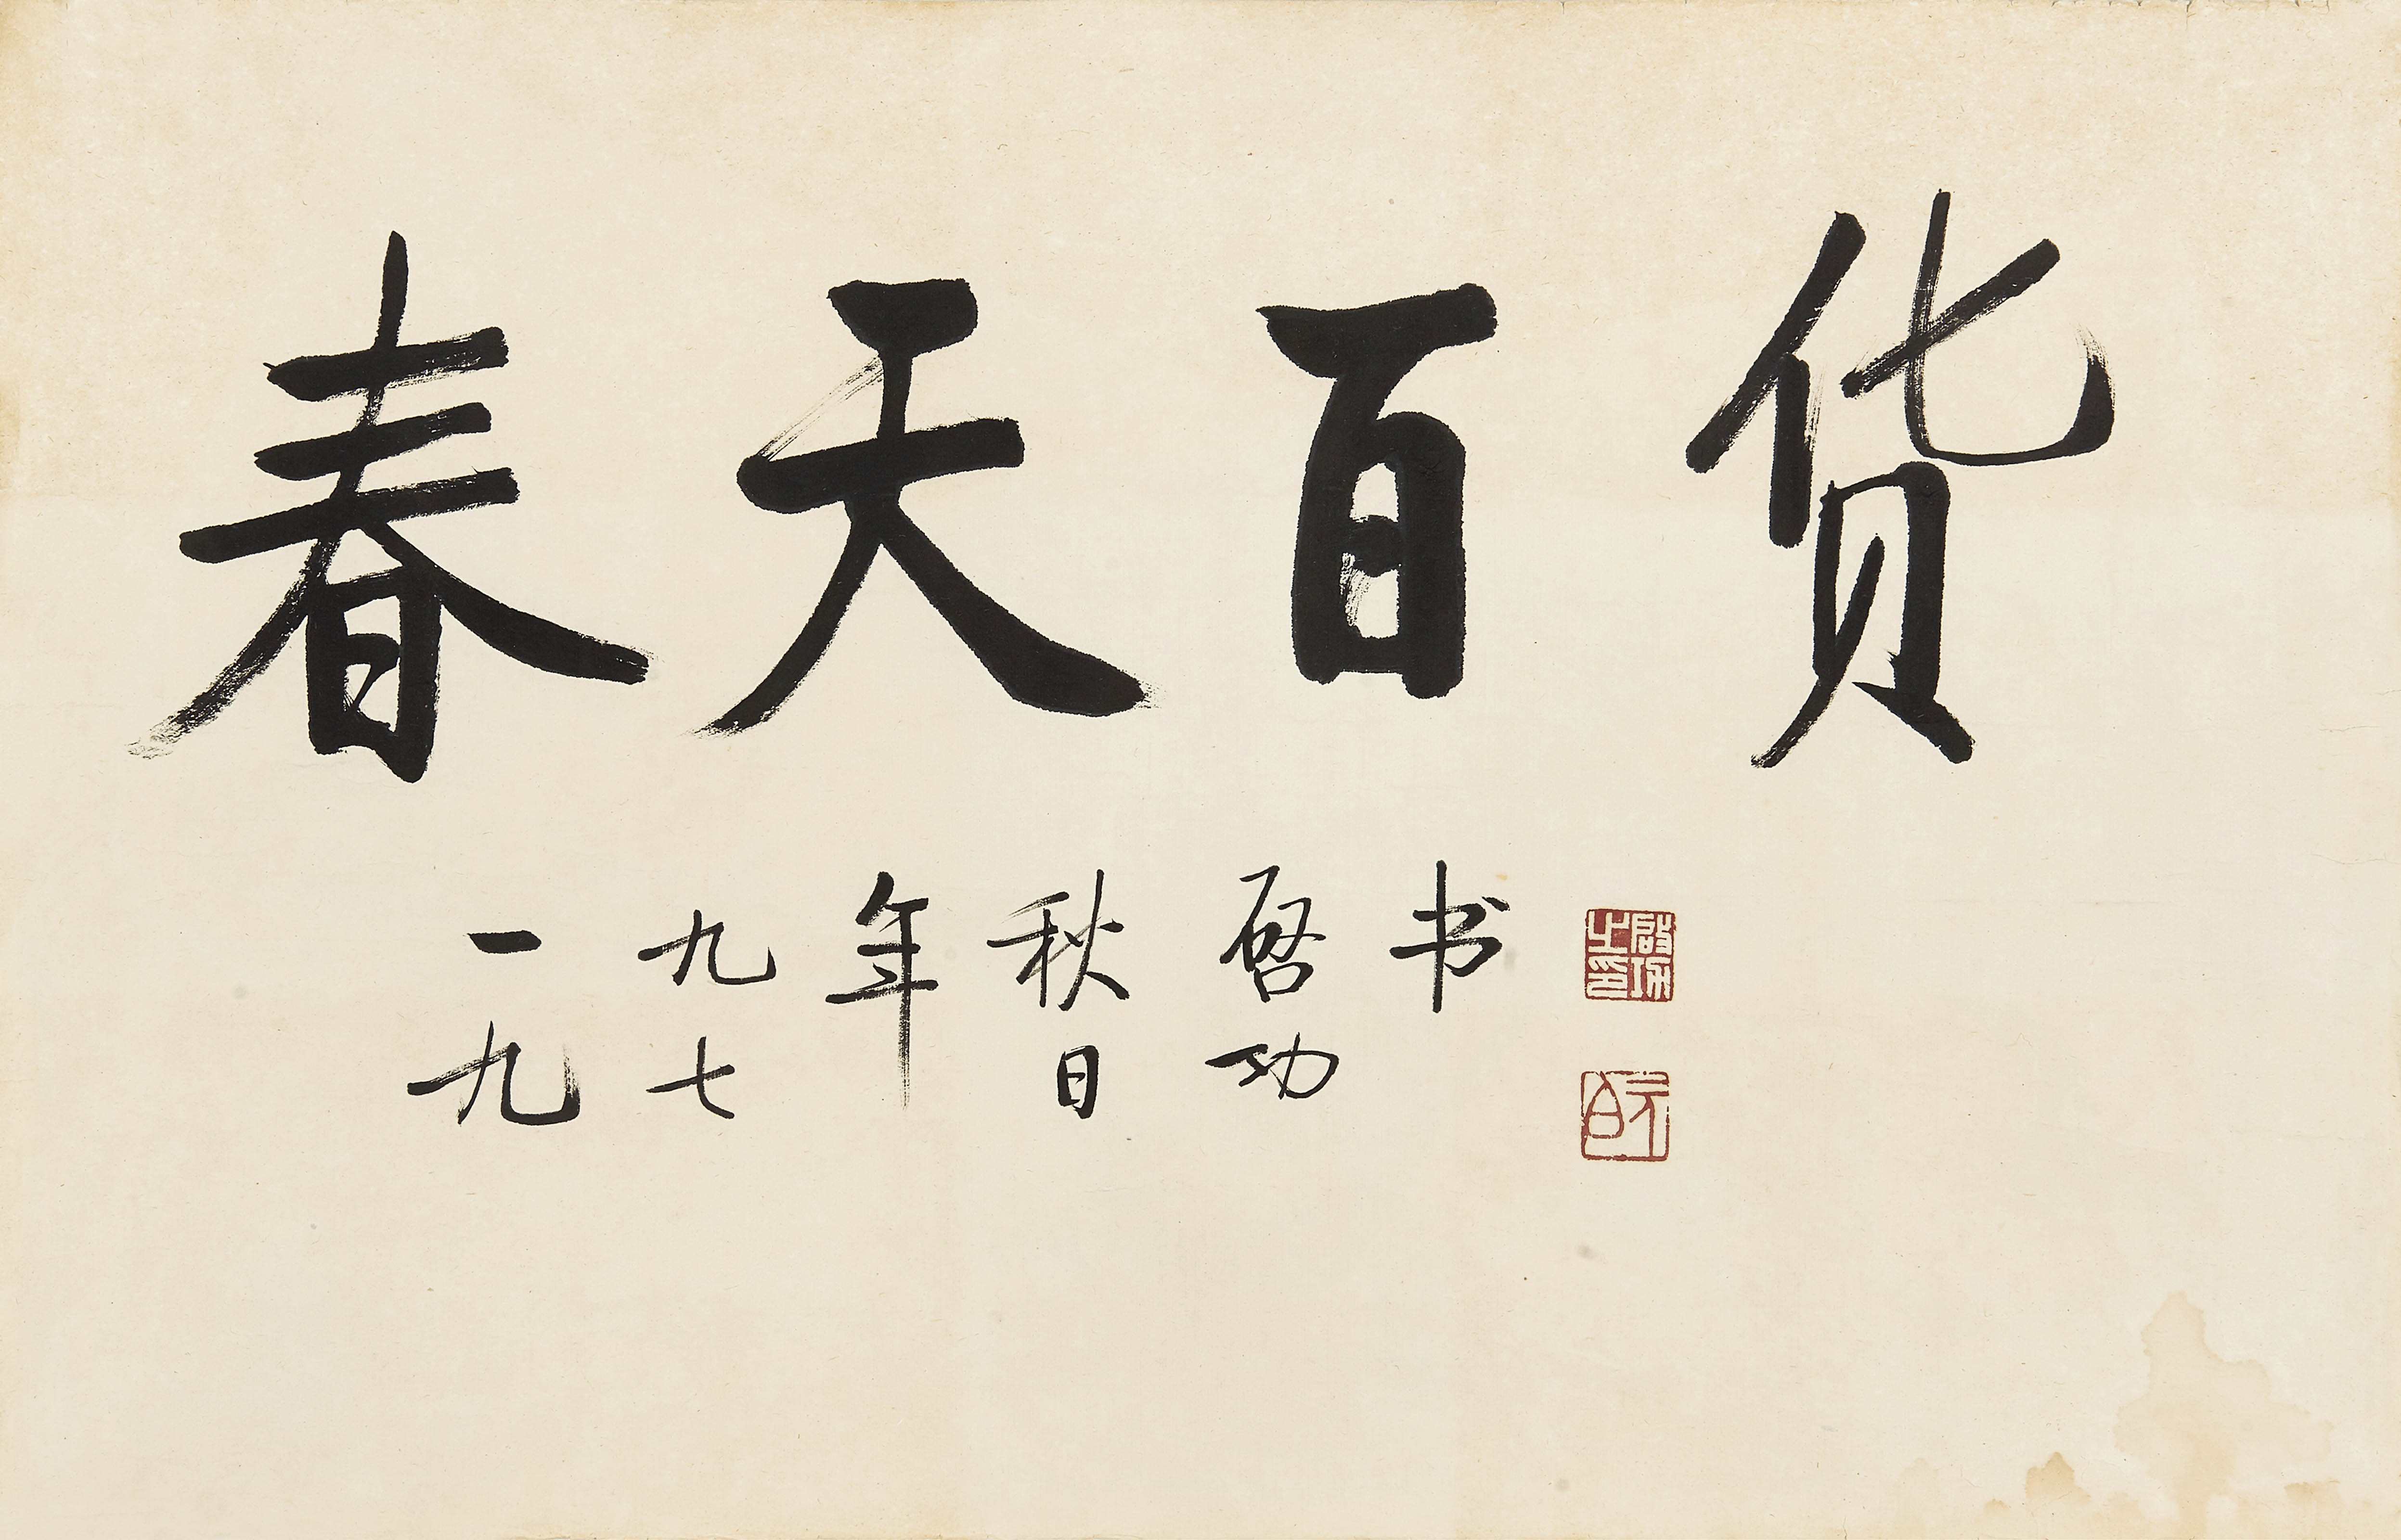 春天百货
一九九七年秋日启功书
启功之印
元白